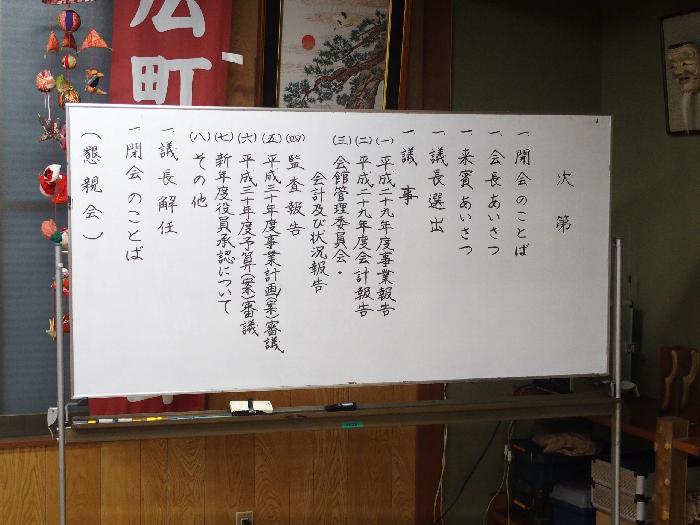 次第
一開会のことば
一会長あいさつ
一来賓あいさつ
一議長選出
一議事
(一)平成二十九年度事業報告
(二)平成二十九年度会計報告
(三)会館管理委員会・
会計及び状況報告
(四)監査報告
(五)平成三十年度事業計画(案)審議
(六)平成三十年度予算(案)審議
(七)新年度役員承認について
(八)その他
一議長解任
一閉会のことば
(懇親会)
町